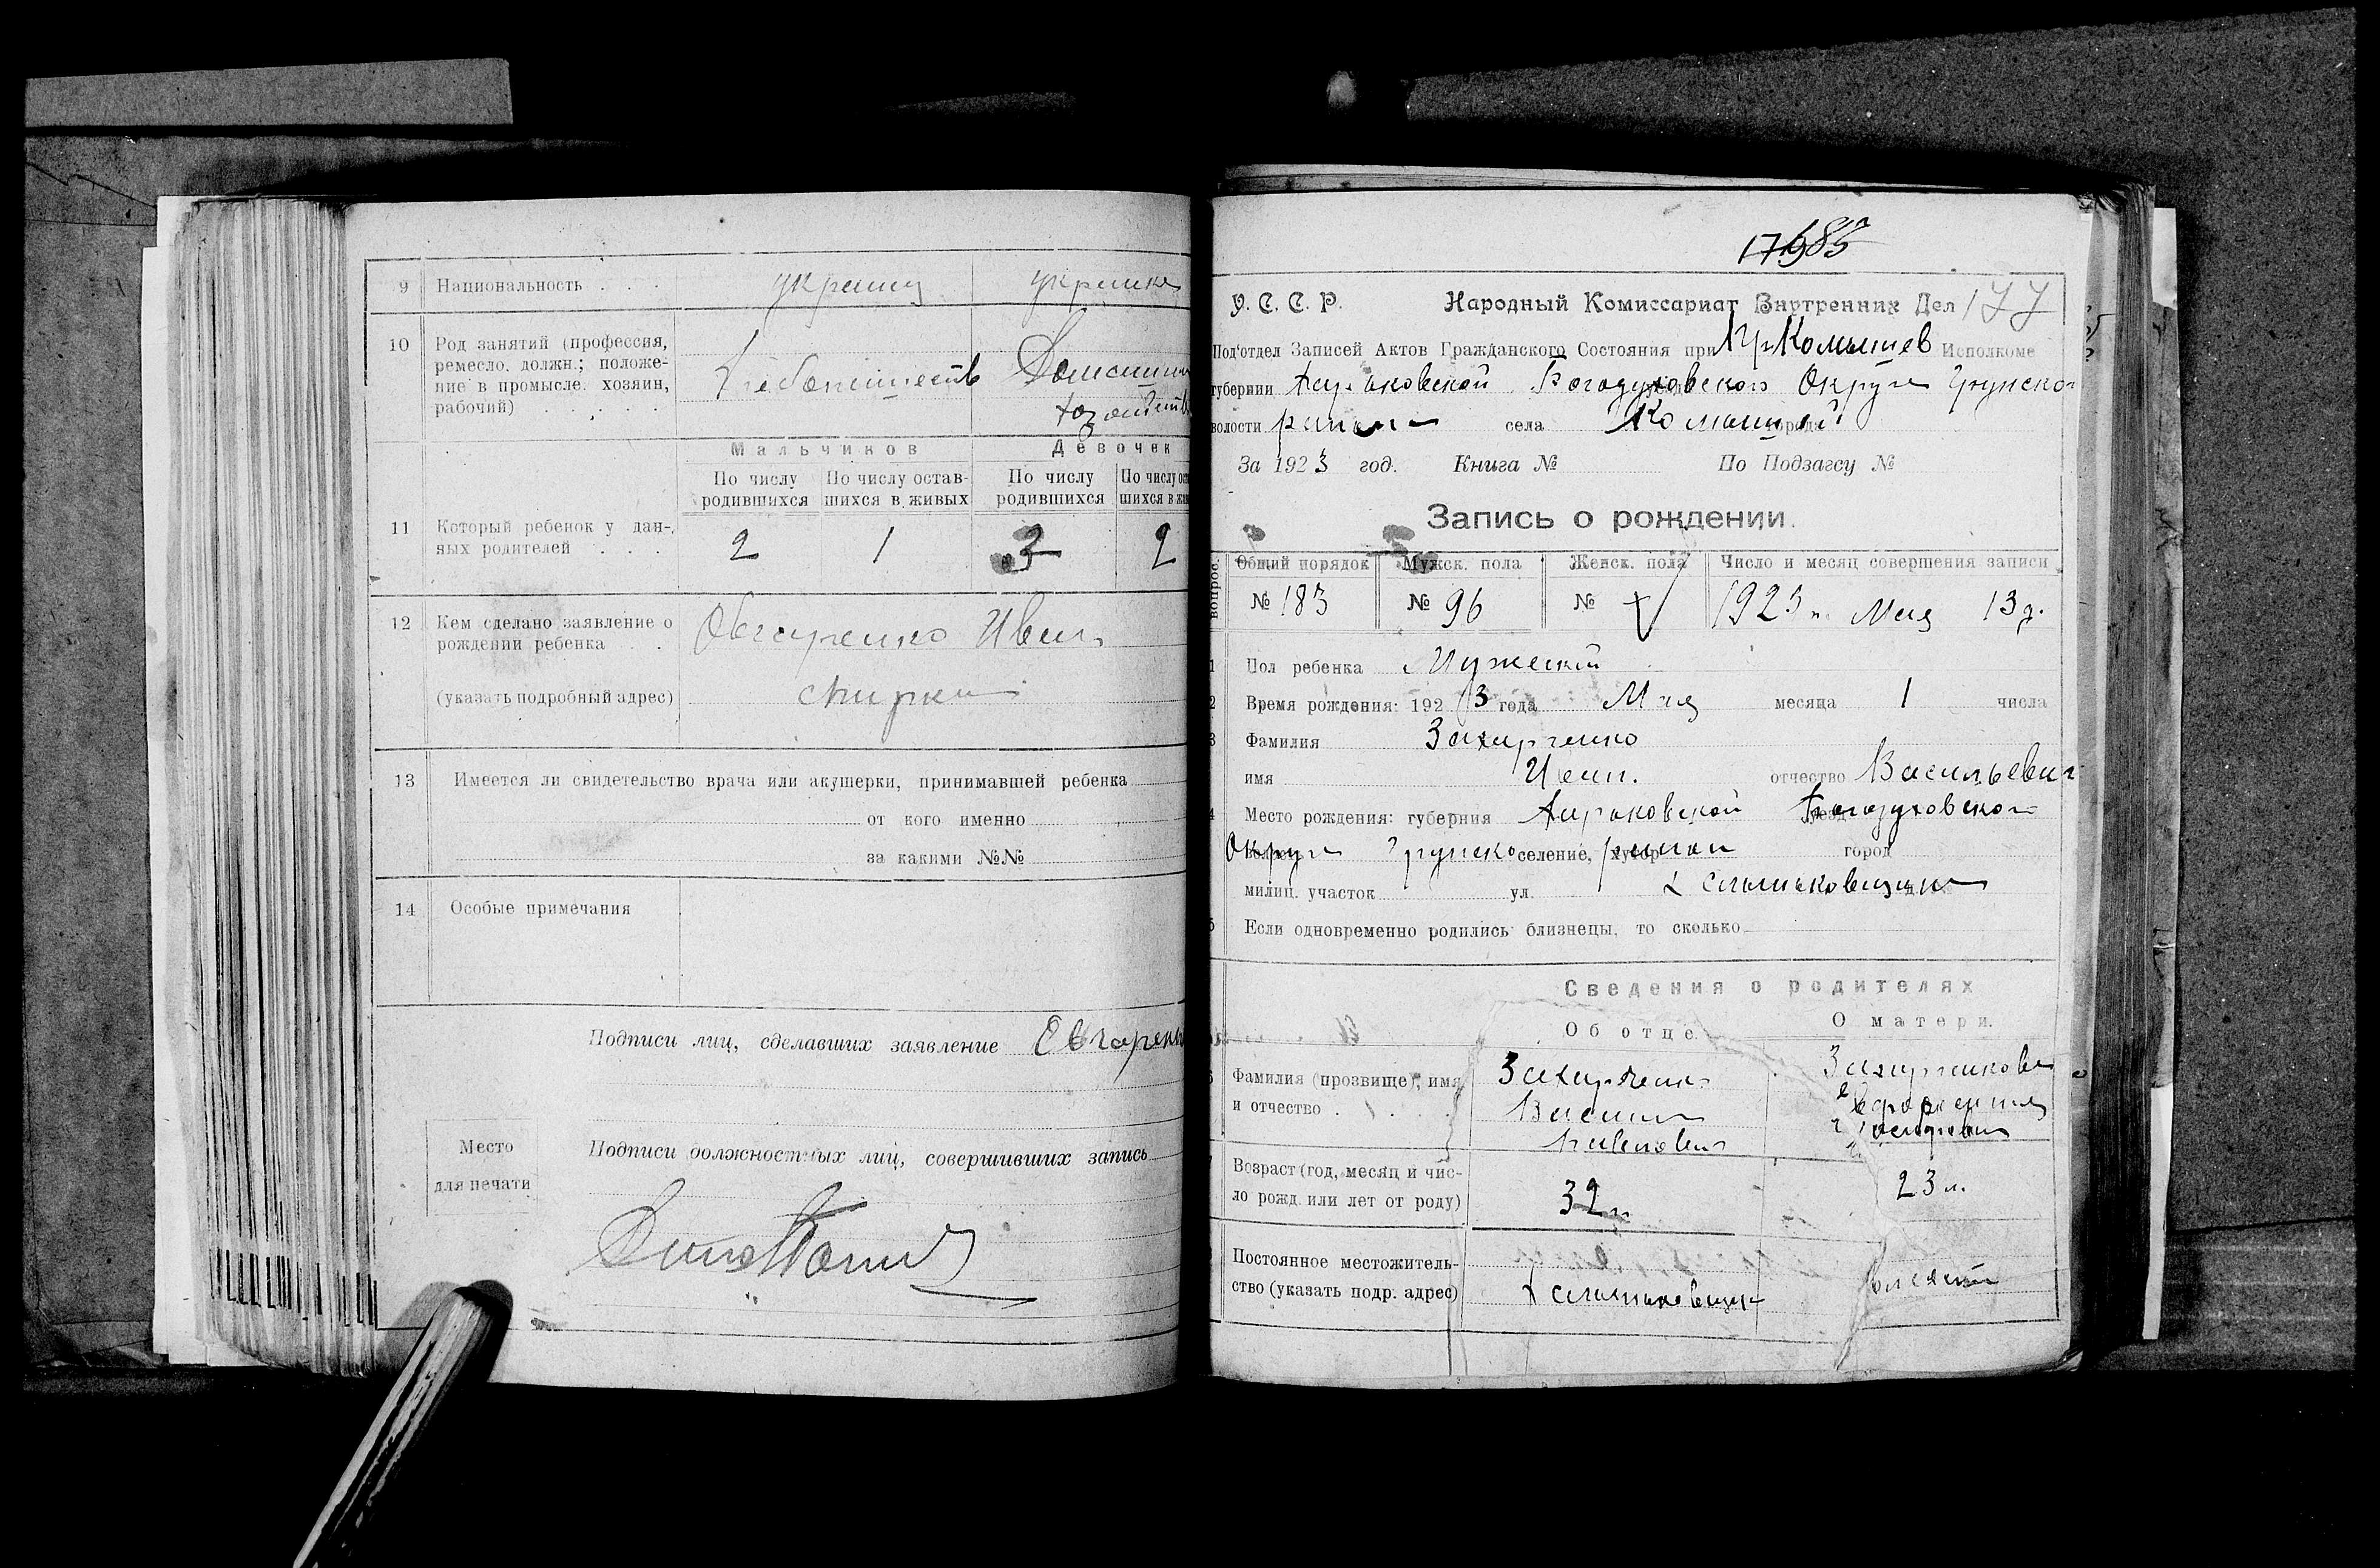 9 Национальность . . . украинец украинка
10 Род занятий (профессия,
ремесло, должн.; положе-
ние в промысле: хозяин,
рабочий) . . . . .
Хлебопашеств Домашнее
хозяйств
Мальчиков Девочек
По числу родившихся По числу остав-шихся в живых По числу родившихся По числу ост шихся в жив
11 Который ребенок у дан-
ных родителей . . .
2 1 3 2
12 Кем сделано заявление о
рождении ребенка . .
Овчаренко Иван
(указать подробный адрес)
13 Имеется ли свидетельство врача или акушерки, принимавшей ребенка
от кого именно
за какими №№
14 Особые примечания
Подписи лиц, сделавших заявление Евчарен
Место
для печати
Подписи должностных лиц, совершивших запись
185
У. С. С. Р. Народный Комиссариат Внутренних Дел 177
Под'отдел Записей Актов Гражданского Состояния при Комышев Исполкоме
губернии Харьковской Богодуховского Округа Грунско
волости района села Комышей города
За 1923 год. Книга № По Подзагсу №
Запись о рождении.
вопрос. Общий порядок Мужск. пола Женск. пола Число и месяц совершения записи
№ 183 № 96 № 1923 г. Мая 13 д.
1 Пол ребенка Мужеский
2 Время рождения: 1923 года Мая месяца 1 числа
3 Фамилия Захарченко
имя Иван. отчество Васильевич
4 Место рождения: губерния Харьковской уезд Богодуховского
Округа Грунско селение, хутор район город
милиц. участок ул.
5 Если одновременно родились близнецы, то сколько
Сведения о родителях
Об отце. О матери.
6 Фамилия (прозвище), имя
и отчество . . . .
Захарченко
Василий
Захарченкова
7 Возраст (год, месяц и чис-
ло рожд. или лет от роду)
32 г. 23 л.
8 Постоянное местожитель-
ство (указать подр. адрес)